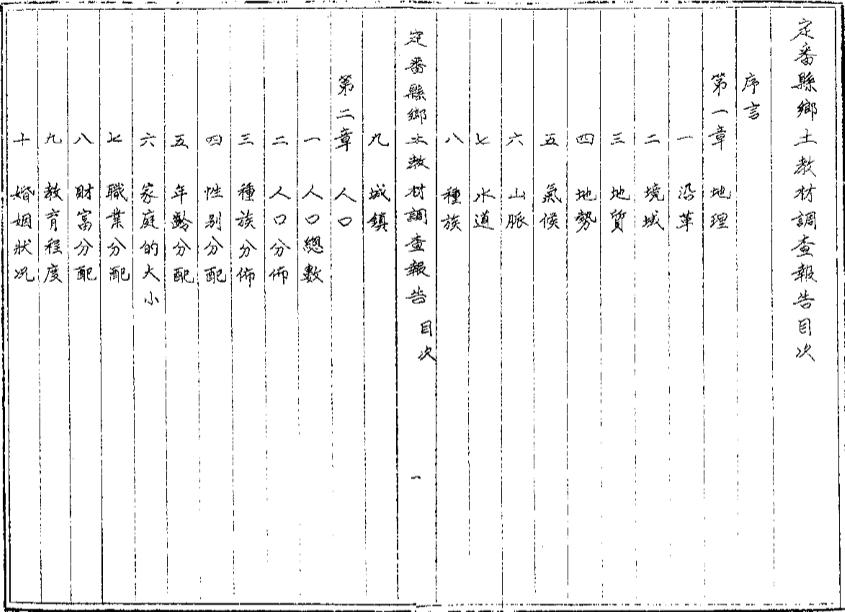 定番縣鄉土教材調查報告目次
序言
第一章 地理
一 沿革
二 境域
三 地質
四 地勢
五 氣候
六 山脈
七 水道
八 種族
定番縣鄉土教材調查報告 目次 一
九 城鎮
第二章 人口
一 人口總數
二 人口分佈
三 種族分佈
四 性別分配
五 年齡分配
六 家庭的大小
七 職業分配
八 財富分配
九 教育程度
十 婚姻狀况